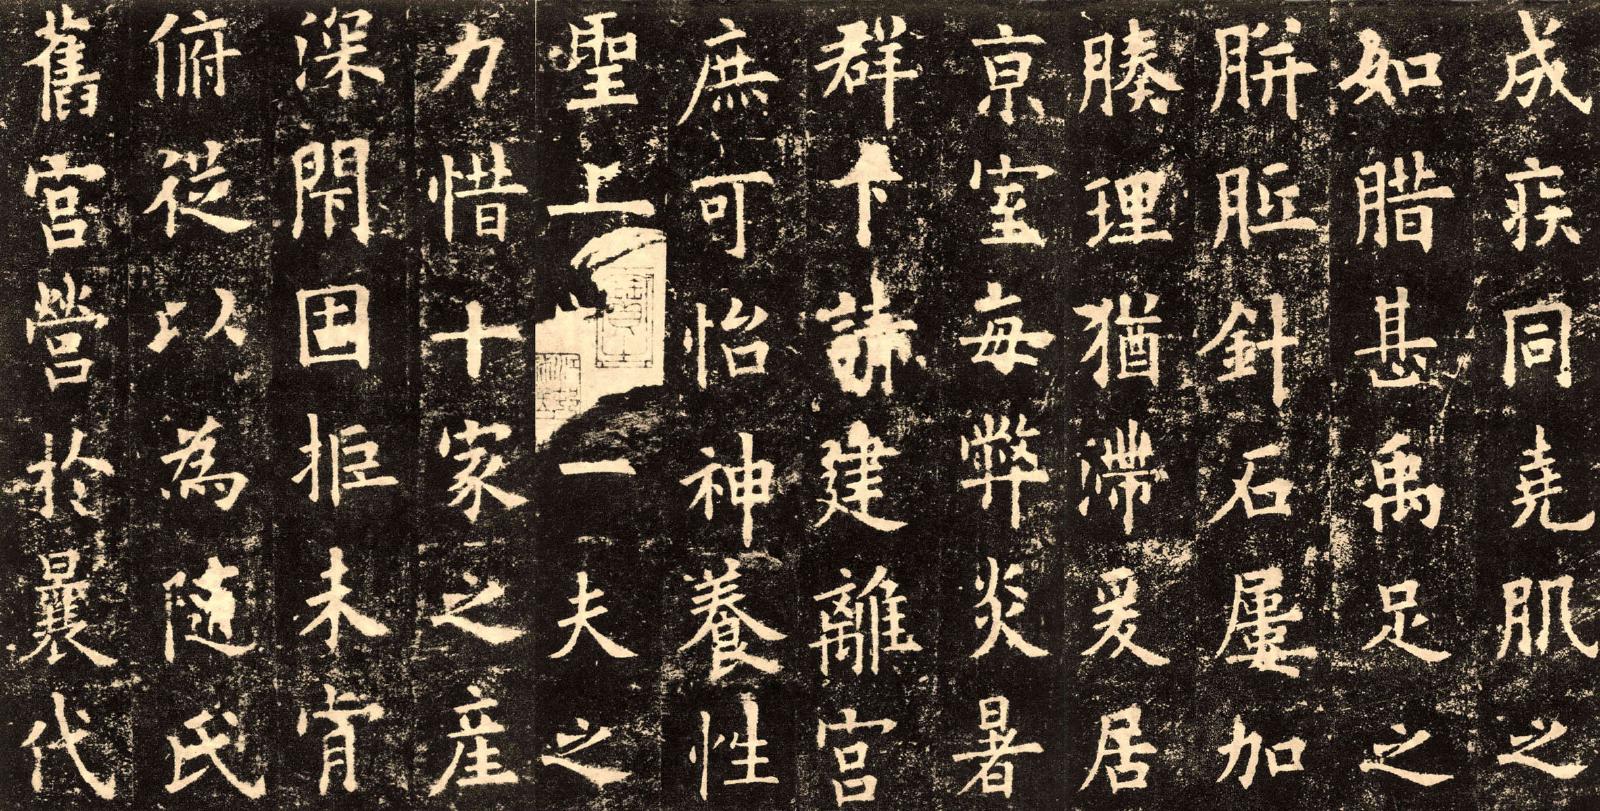 成疾同堯肌之
如腊甚禹足之
胼胝針石屢加
腠理猶滯爰居
京室每弊炎暑
群下請建離宮
庶可怡神養性
聖上一夫之
力惜十家之產
深閇固拒未肯
俯從以為隨氏
舊宮營於曩代